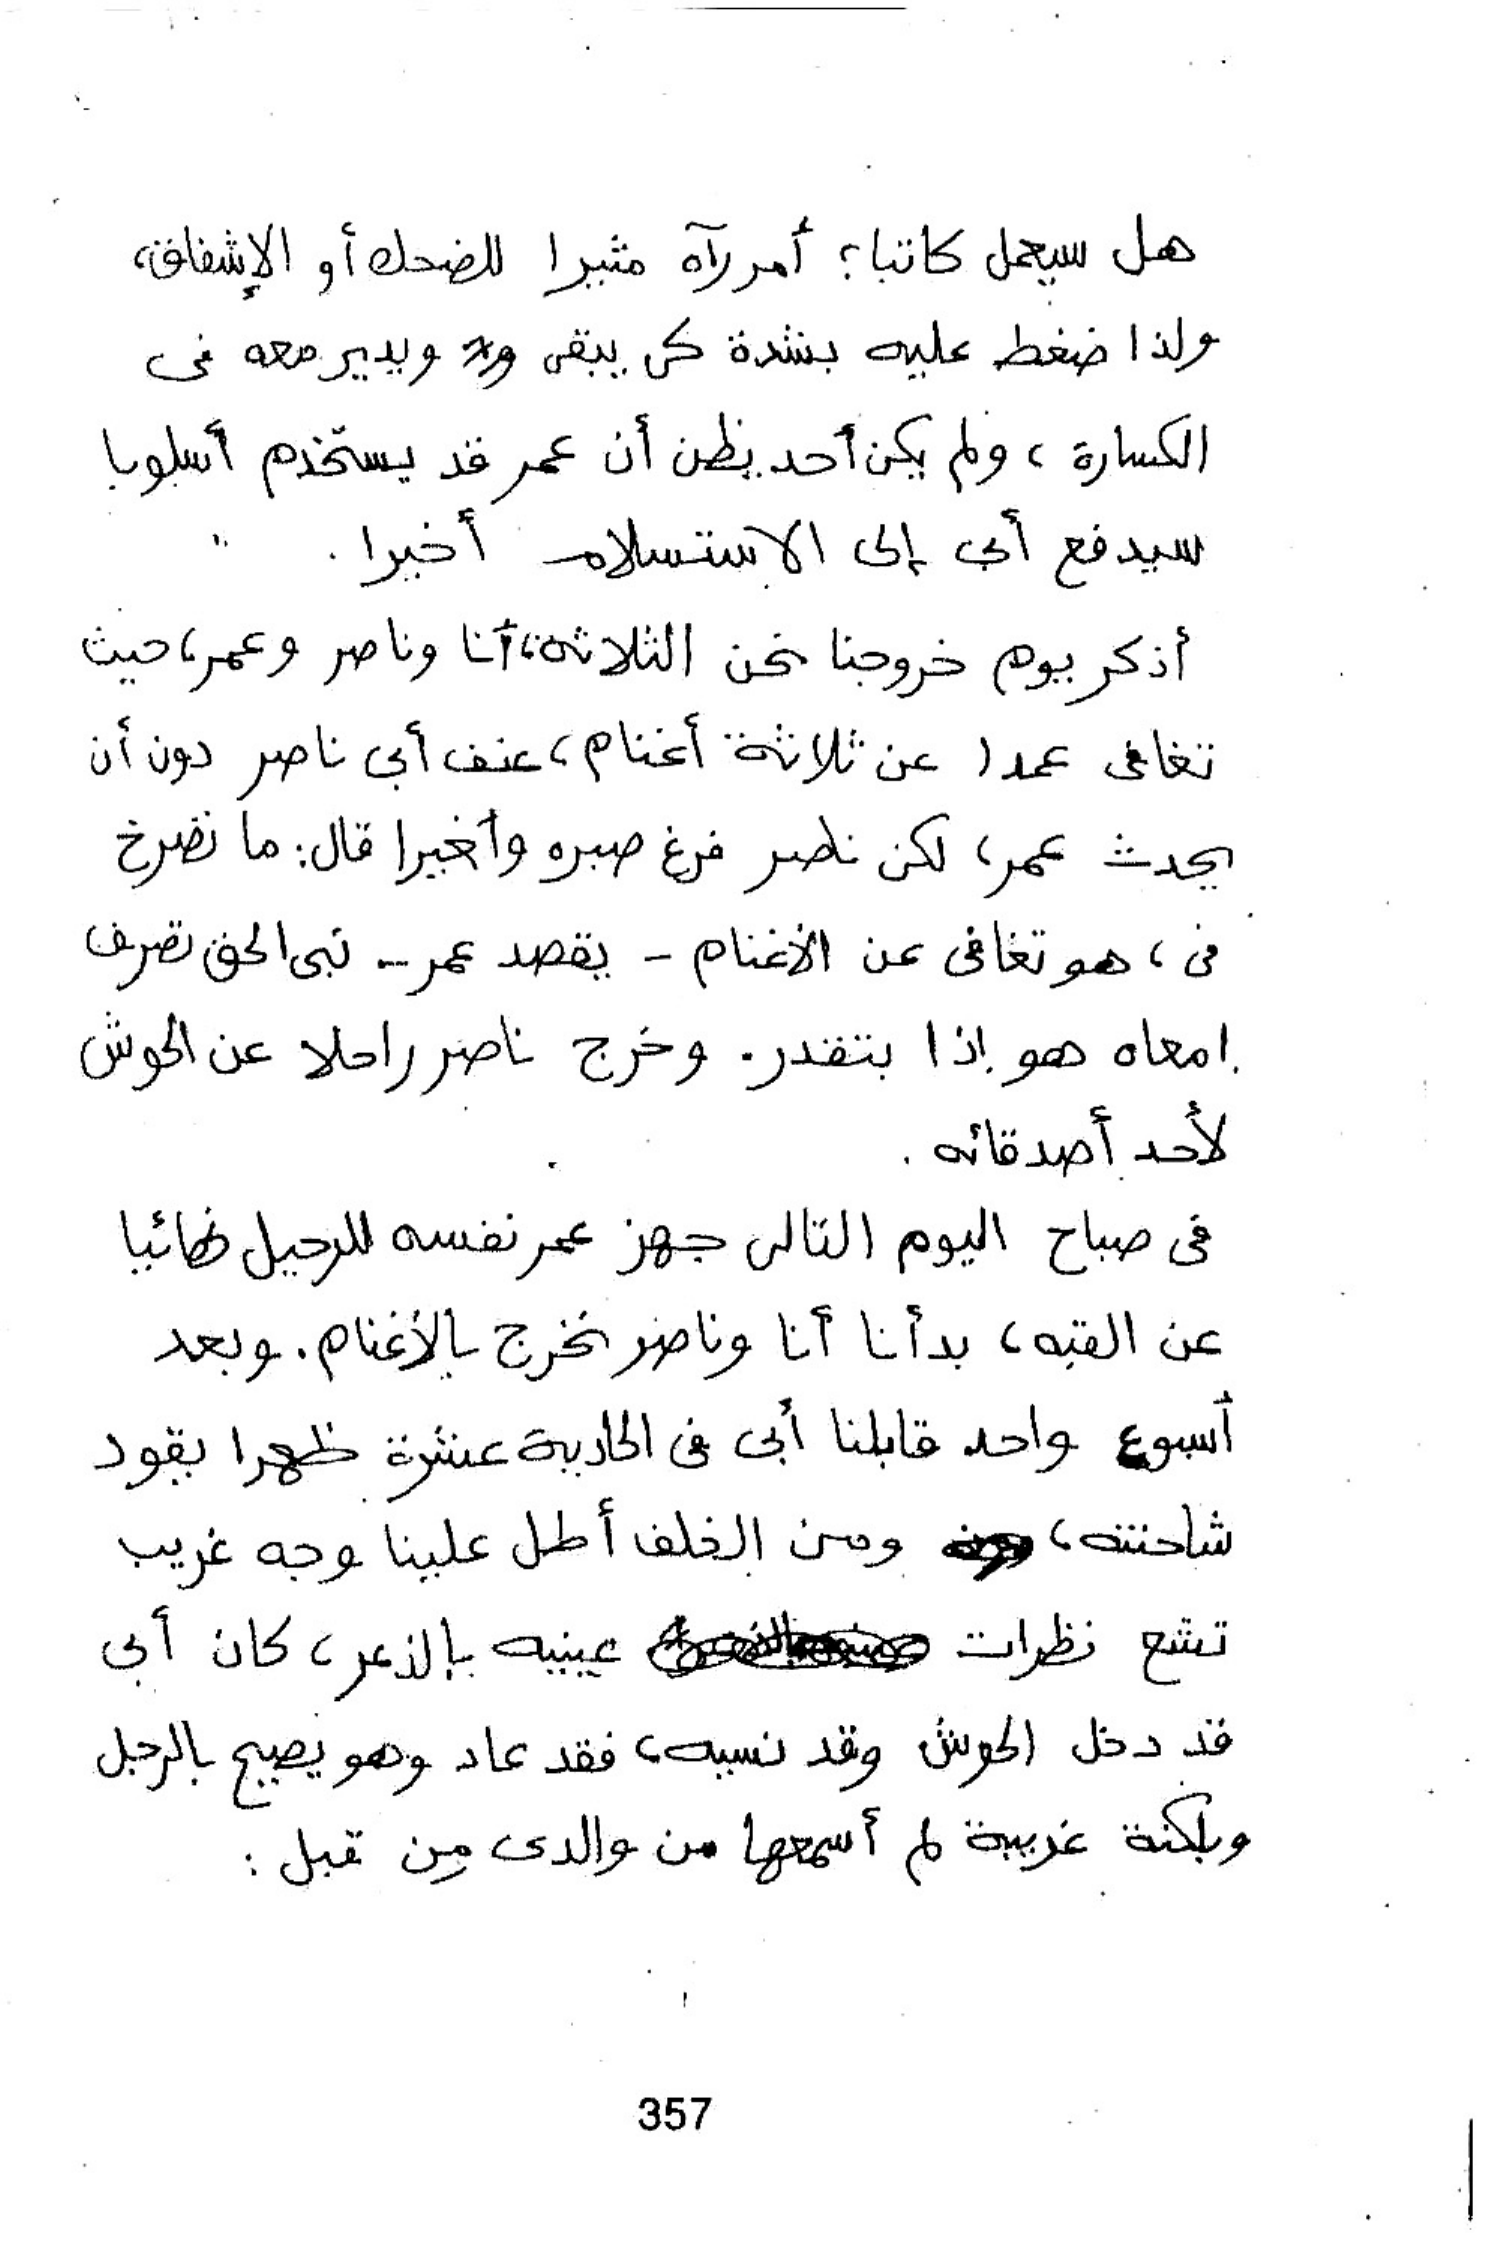 هل سيعمل كاتبا؟ أمر رآه مثيرا للضحك أو الإشفاق،
ولذا ضغط عليه بشدة كى يبقى ويدير معه فى
الكسارة، ولم يكن أحد يظن أن عمر قد يستخدم أسلوبا
سيدفع أبى إلى الاستسلام أخيرا.
أذكر يوم خروجنا نحن الثلاثة، أنا وناصر وعمر، حيث
تغافى عمدا عن ثلاثة أغنام، عنف أبى ناصر دون أن
يحدث عمر، لكن ناصر فرغ صبره وأخيرا قال: ما تضرخ
فى، هو تغافى عن الأغنام - يقصد عمر - تبى الحق تصرف
امعاه هو إذا بتقدر. وخرج ناصر راحلا عن الحوش
لأحد أصدقائه.
فى صباح اليوم التالى جهز عمر نفسه للرحيل نهائيا
عن القبه، بدأنا أنا وناصر نخرج بالأغنام. وبعد
أسبوع واحد قابلنا أبى فى الحادية عشرة ظهرا يقود
شاحنته، ومن الخلف أطل علينا وجه غريب
تشع نظرات عينيه بالذعر، كان أبى
قد دخل الحوش وقد نسيه، فقد عاد وهو يصيح بالرجل
وبلكنة غريبة لم أسمعها من والدى من قبل:
357